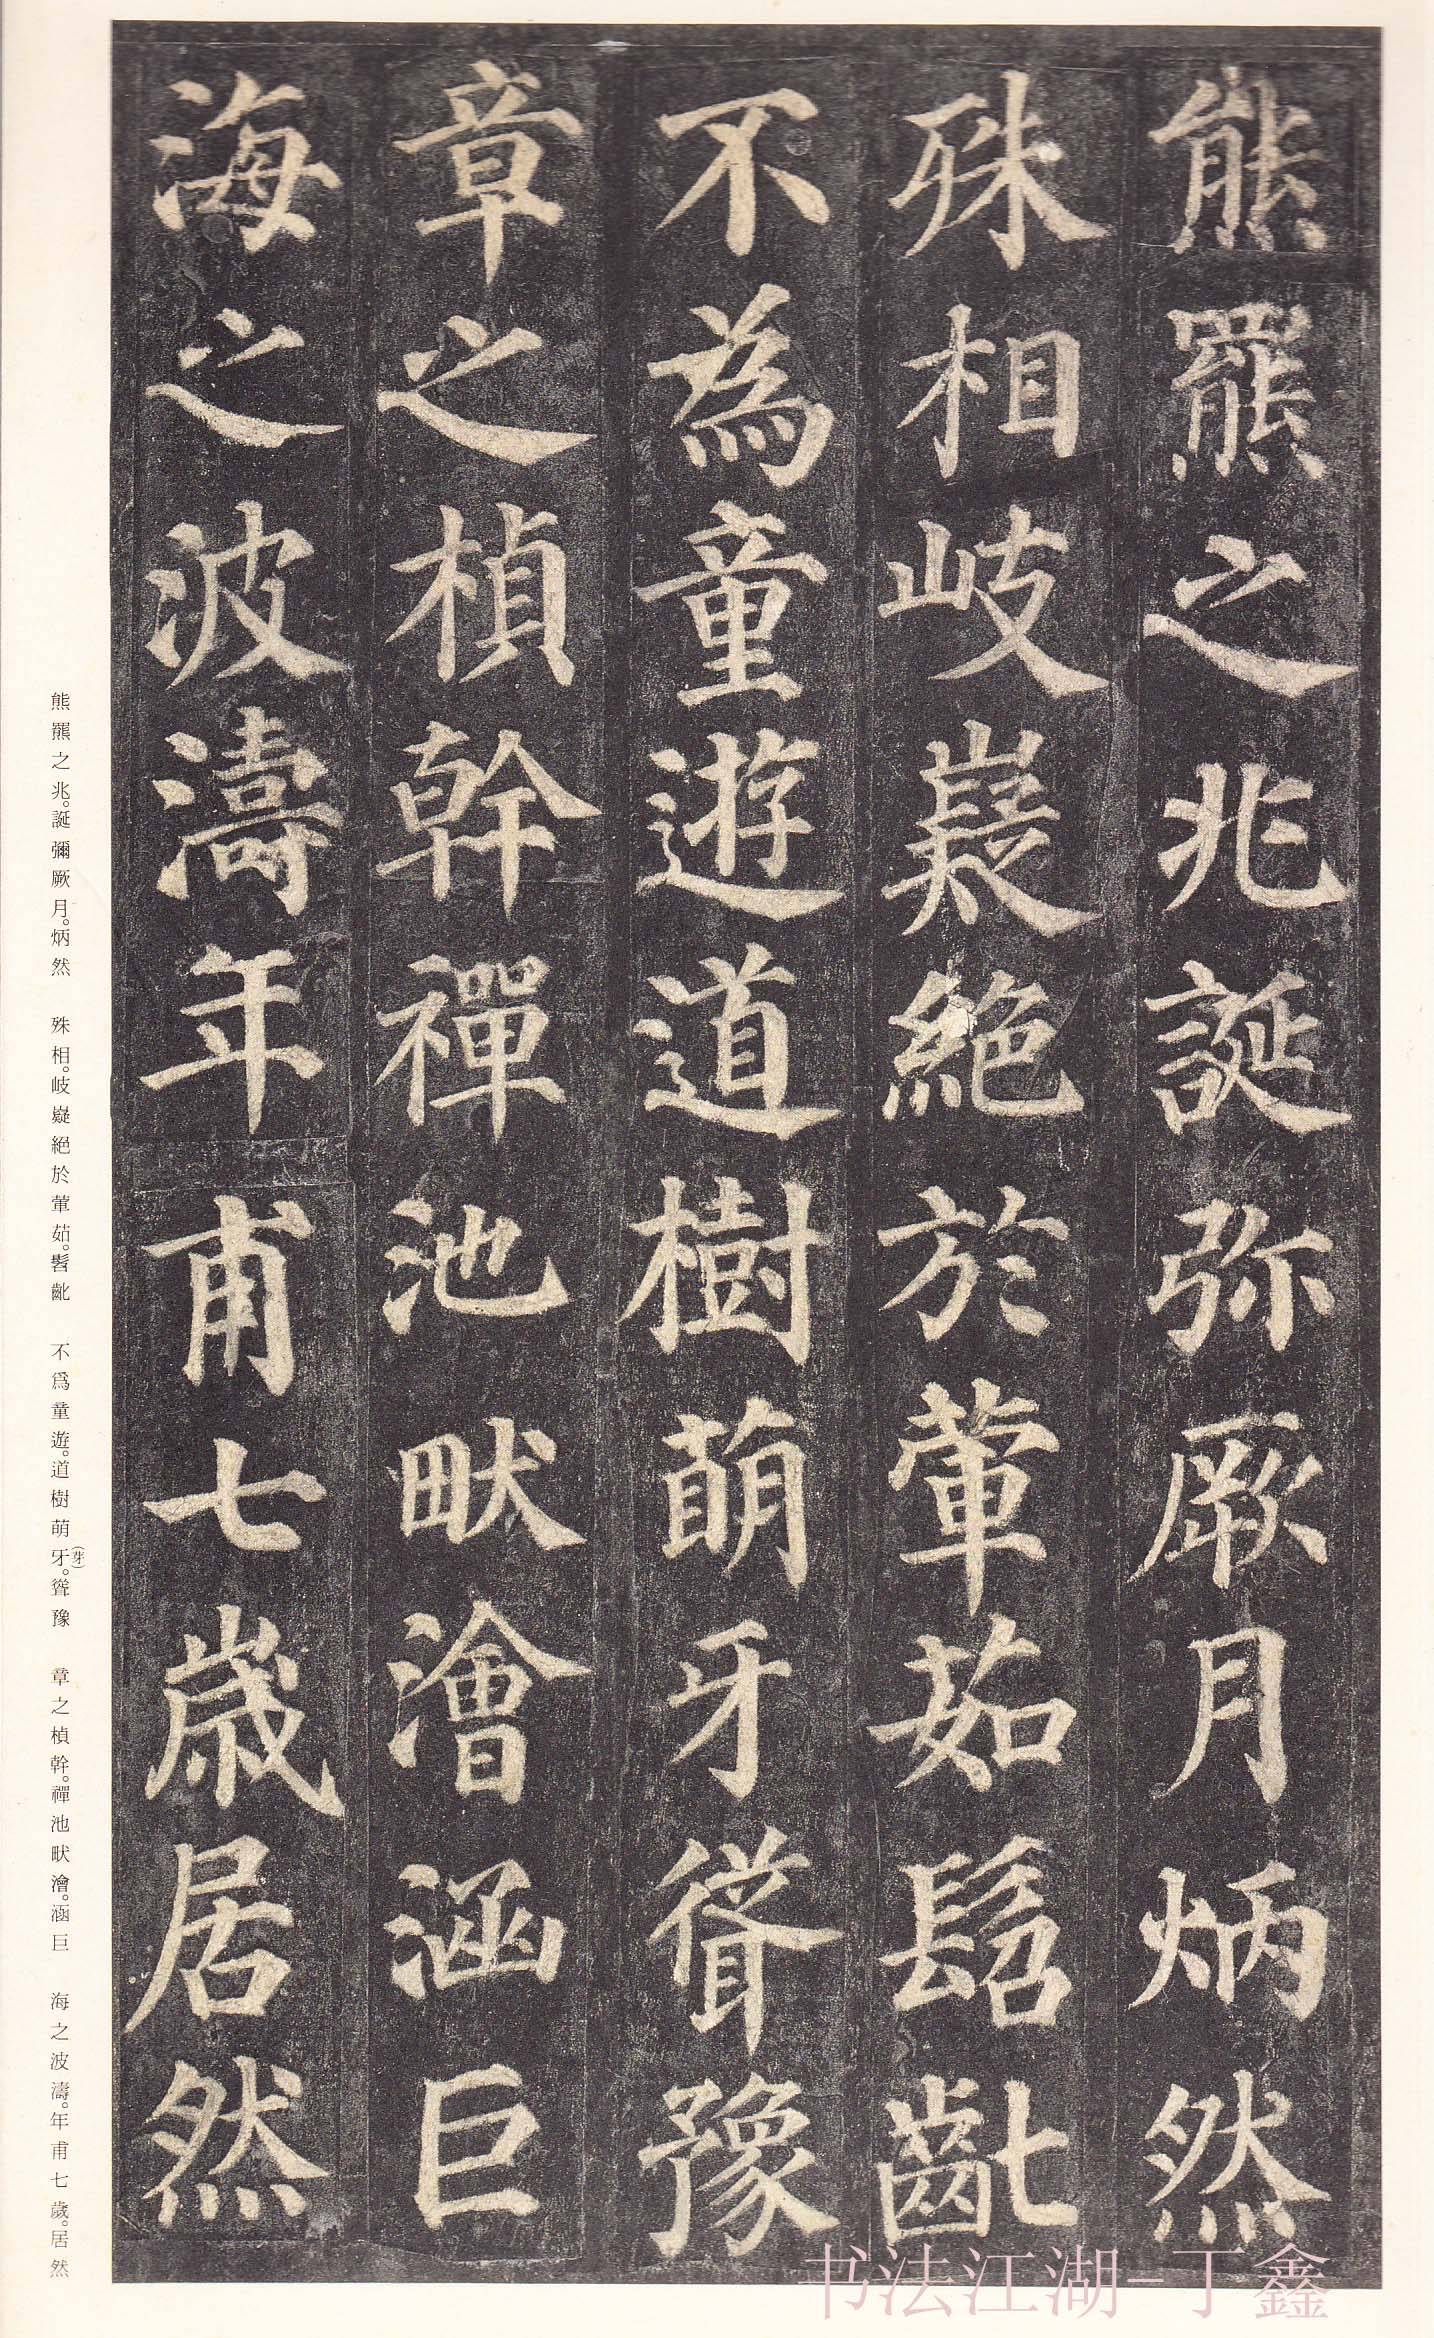 熊羆之兆誕弥厥月炳然
殊相岐嶷絕於葷茹髫齔
不為童遊道樹萌牙聳豫
章之楨幹禪池畎澮涵巨
海之波濤年甫七歲居然
熊羆之兆。誕彌厥月。炳然　殊相。岐嶷絕於葷茹。髫齔　不爲童遊。道樹萌牙(芽)。聳豫　章之楨幹。禪池畎澮。涵巨　海之波濤。年甫七歲。居然
书法江湖-丁鑫